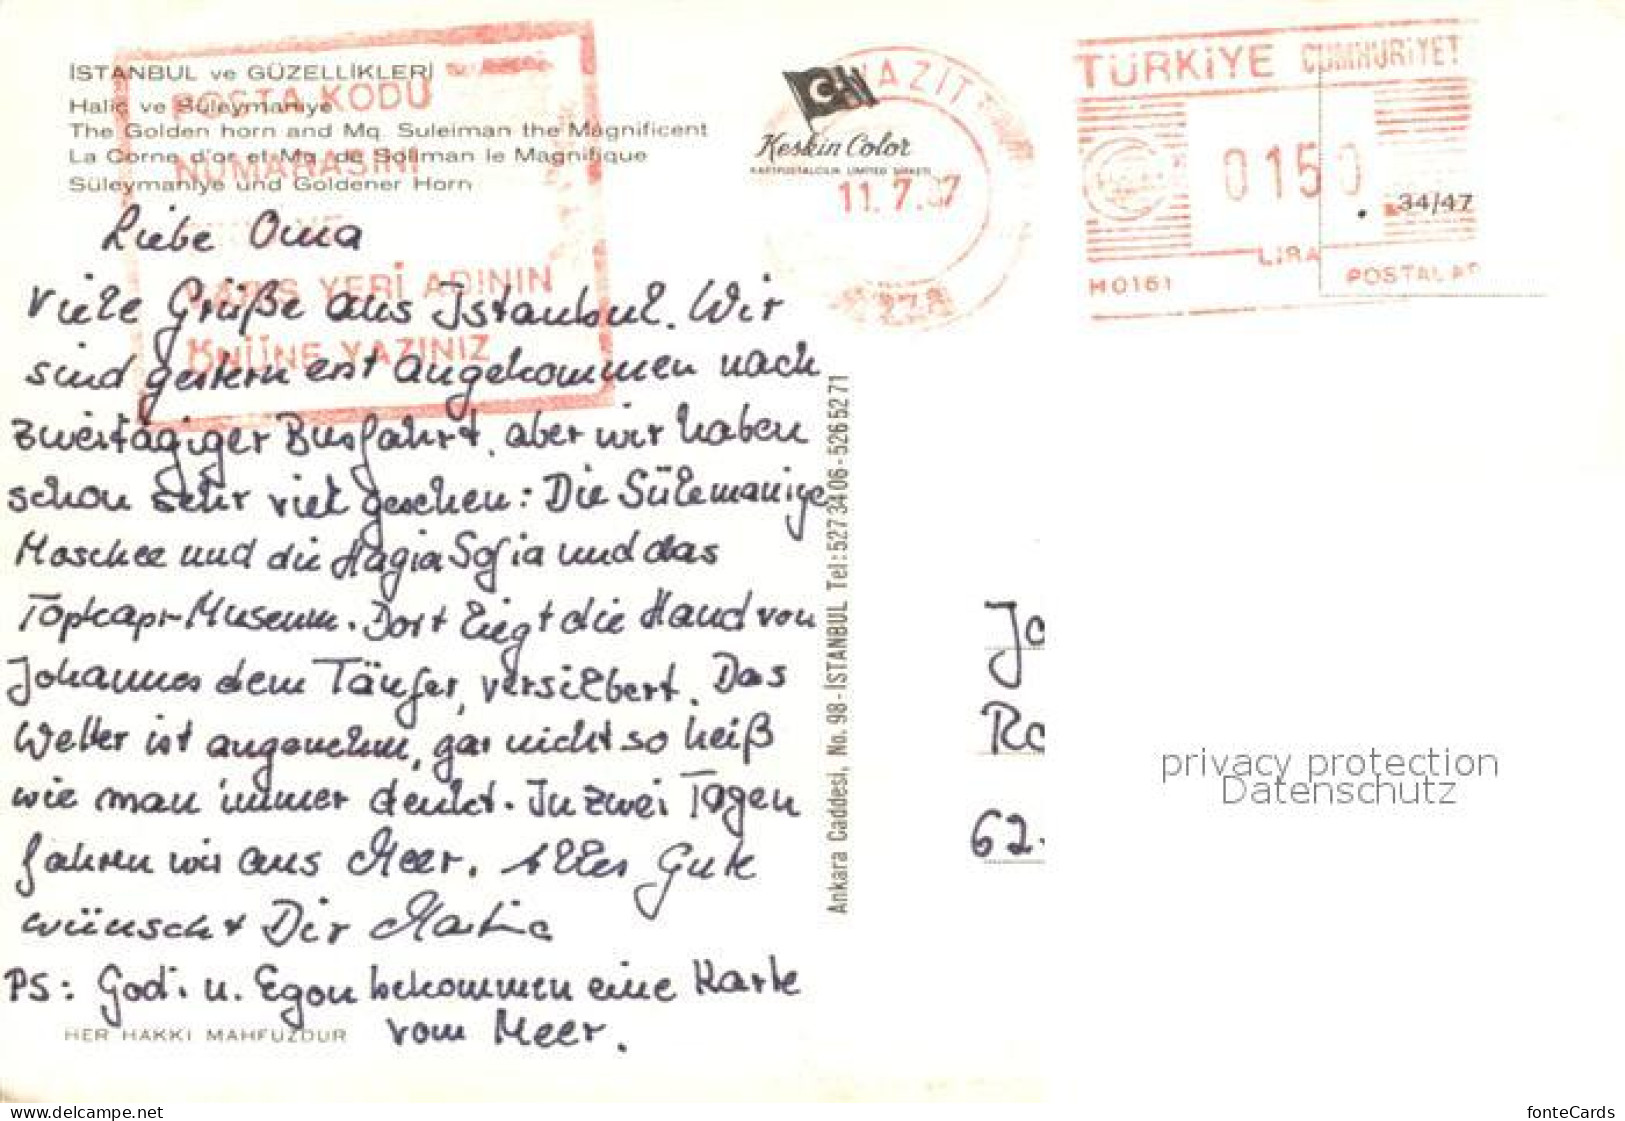 İSTANBUL ve GÜZELLİKLERİ
Haliç ve Süleymaniye
The Golden horn and Mq. Suleiman the Magnificent
La Corne d'or et Mq. de Soliman le Magnifique
Süleymaniye und Goldener Horn
POSTA KODU
NUMARASINI
VARIŞ YERİ ADININ
ÖNÜNE YAZINIZ
Keskin Color
KARTPOSTALCILIK LIMITED ŞİRKETİ
AZIT
11.7.87
278
TÜRKİYE CUMHURİYET
0150
LİRA
H0161
POSTALAR
34/47
Liebe Oma
Viele Grüße aus Istanbul. Wir
sind gestern erst angekommen nach
zweitägiger Busfahrt, aber wir haben
schon sehr viel gesehen: Die Sülemaniye
Moschee und die Hagia Sofia und das
Topkapi-Museum. Dort liegt die Hand von
Johannes dem Täufer, versilbert. Das
Wetter ist angenehm, gar nicht so heiß
wie man immer denkt. In zwei Tagen
fahren wir ans Meer. Alles Gute
wünscht Dir Martina
PS: God. u. Egon bekommen eine Karte
vom Meer.
HER HAKKI MAHFUZDUR
Ankara Caddesi, No. 98 - İSTANBUL Tel: 527 34 06 - 526 52 71
Jo
Ro
62.
privacy protection
Datenschutz
www.delcampe.net
fonteCards